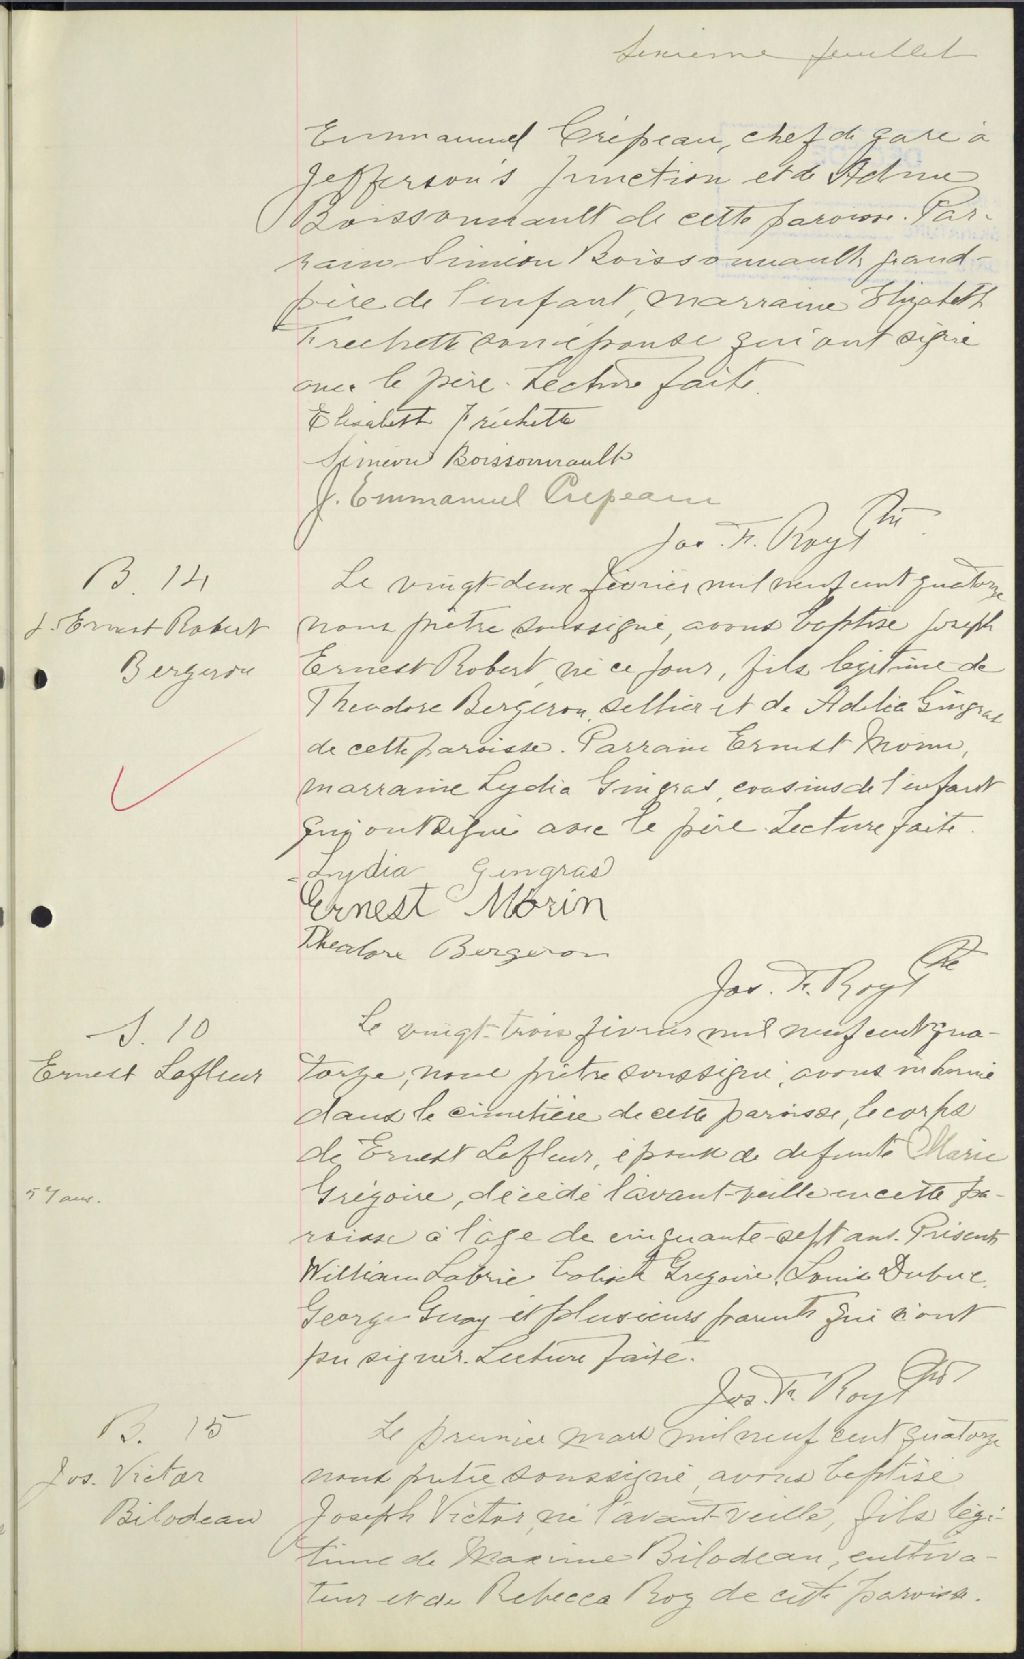 Sixième feuillet
Emmanuel Crépeau, chef de gare à
Jefferson's Junction et de
Boissonnault de cette paroisse. Par-
rain Siméon Boissonnault, grand-
père de l'enfant, marraine Elizabeth
Frechette son épouse qui ont signé
avec le père. Lecture faite.
Elisabeth Fréchette
Siméon Boissonnault
J. Emmanuel Crepeau
Jos. F. Roy Ptre
B. 14
J. Ernest Robert
Bergeron
Le vingt-deux février mil neuf cent quatorze
nous prêtre soussigné, avons baptisé Joseph
Ernest Robert, né ce jour, fils légitime de
Theodore Bergeron, sellier et de Adelia Gingras
de cette paroisse. Parrain Ernest Morin,
marraine Lydia Gingras, cousins de l'enfant
qui ont signé avec le père. Lecture faite.
Lydia Gingras
Ernest Morin
Theodore Bergeron
Jos. F. Roy Ptre
S. 10
Ernest Lafleur
57 ans.
Le vingt-trois février mil neuf cent qua-
torze, nous prêtre soussigné, avons inhumé
dans le cimetière de cette paroisse, le corps
de Ernest Lafleur, époux de defunte Marie
Grégoire, décédé l'avant-veille en cette pa-
roisse à l'âge de cinquante-sept ans. Présents
William Labrie, Calixte Gregoire, Louis Dubuc,
George Guay et plusieurs parents qui n'ont
pu signer. Lecture faite.
Jos. F. Roy Ptre
B. 15
Jos. Victor
Bilodeau
Le premier mars mil neuf cent quatorze
nous prêtre soussigné, avons baptisé
Joseph Victor, né l'avant-veille, fils légi-
time de Maxime Bilodeau, cultiva-
teur et de Rebecca Roy de cette paroisse.